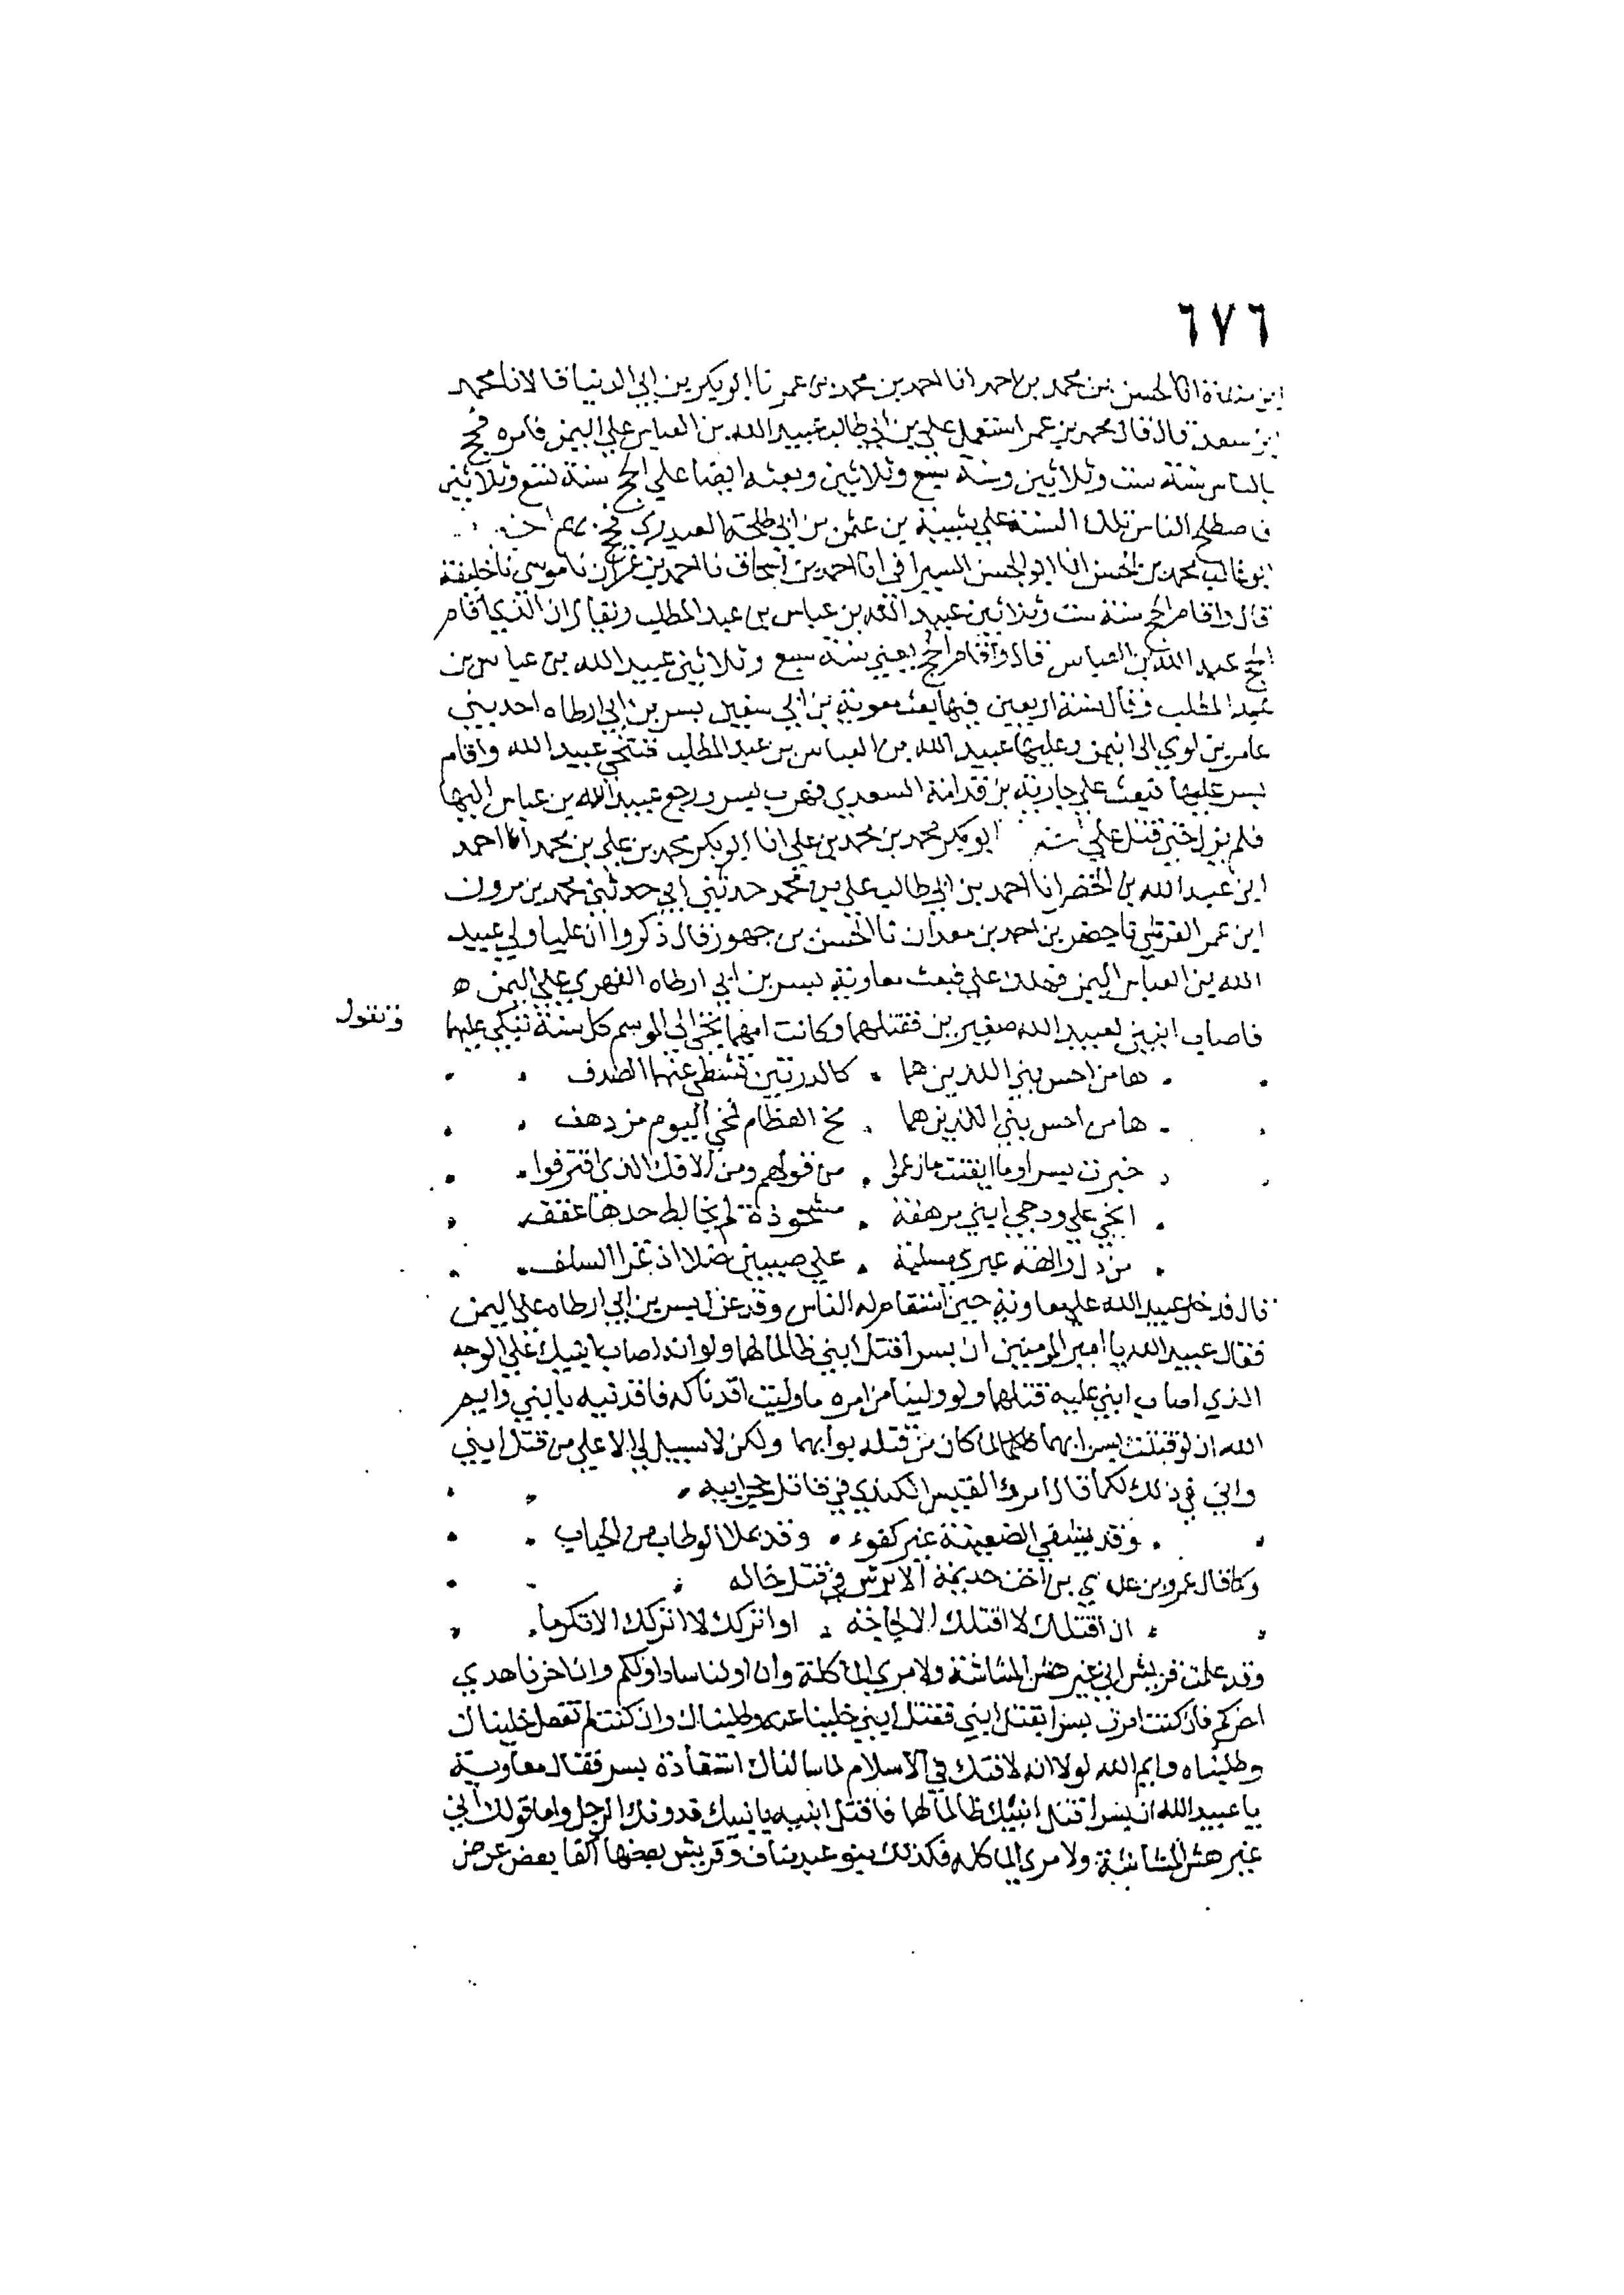 ٦٧٦
ابن منده انا الحسن بن محمد بن احمد انا احمد بن محمد بن عمر نا ابو بكر بن ابي الدنيا قالا نا محمد
ابن سعد قال قال محمد بن عمر استعمل علي بن ابي طالب عبيد الله بن العباس علي اليمن فامره فحج
بالناس سنة ست وثلاثين وسنة سبع وثلاثين وبعثه ايضا علي الحج سنة تسع وثلاثين
فاصطلح الناس تلك السنة علي شيبة بن عثمن بن ابي طلحة العبدري فحج بهم
ابو غالب محمد بن الحسن انا ابو الحسن السيرافي انا احمد بن اسحاق نا احمد بن عمران نا موسي نا خليفة
قال واقام الحج سنة ست وثلاثين عبيد الله بن عباس بن عبد المطلب ويقال ان الذي اقام
الحج عبد الله بن العباس قال واقام الحج يعني سنة سبع وثلاثين عبيد الله بن عباس بن
عبد المطلب وقال سنة اربعين فيها بعث معوية بن ابي سفيين بسر بن ابي ارطاه احد بني
عامر بن لوي الي اليمن وعليها عبيد الله بن العباس بن عبد المطلب فتنحي عبيد الله واقام
بسر عليها فبعث علي جارية بن قدامة السعدي فهرب بسر ورجع عبيد الله بن عباس اليها
فلم يزل حتي قتل علي ابو بكر محمد بن محمد بن علي انا ابو بكر محمد بن علي بن محمد انا احمد
ابن عبد الله بن الخضر انا احمد بن ابي طالب علي بن محمد حدثني ابي حدثني محمد بن مرون
ابن عمر القرشي نا جعفر بن احمد بن معدان نا الحسن بن جهور قال ذكروا ان عليا ولي عبيد
الله بن العباس اليمن فهلك علي فبعث معاوية بسر بن ابي ارطاه الفهري علي اليمن ه
فاصاب ابنين لعبيد الله صغيرين فقتلهما وكانت امهما تخرج الي الموسم كل سنة تبكي عليهما وتقول
ها من احس بني اللذين هما كالدرتين تشظي عنهما الصدف
ها من احس بني اللذين هما مخ العظام فمخي اليوم مزدهف
خبرت بسرا وما ايقنت ما زعموا من قولهم ومن الافك الذي اقترفوا
انحي علي ودجي ابني مرهفة مشحوذة لم يخالط حدها عقف
من دل والهة عبري مسلبة علي صبيين ضلا اذ غدا السلف
قال فدخل عبيد الله علي معاوية حين استقام له الناس وقد عزل بسر بن ابي ارطاه علي اليمن
فقال عبيد الله يا امير المومنين ان بسرا قتل ابني ظالما لهما ولو انه اصاب ابنيك علي الوجه
الذي اصاب ابني عليه قتلهما ولو ولينا من امره ما وليت اقدناكه فاقدنيه بابني وايم
الله ان لو قتلت بسرا بهما لما كان من قتله بوا بهما ولكن لا سبيل لي الا علي من قتل ابني
واني في ذلك لكما قال امرؤ القيس الكندي في قاتل حجر ابيه
وقد يشفي الضغينة غير كفوء وقد يملا الوطاب من الحباب
وكما قال عمرو بن عدي بن اخت جذيمة الابرش في قتل خاله
ان اقتلك لا اقتلك الا لحاجة او اتركك لا اتركك الا تكرما
وقد علمت قريش اني غير هش المشاشة ولا مري الماكلة وان اولنا ساد اولكم وان اخرنا هدي
اخركم فان كنت امرت بسرا بقتل ابني فقتل ابني خلينا عنه وطلبناك وان كنت لم تفعل خليناك
وطلبناه وايم الله لولا انه لا فتك في الاسلام لما سالناك استقاذة بسر فقال معاوية
يا عبيد الله ان بسرا قتل ابنيك ظالما لهما فاقتل ابنيه بابنيك فدونك الرجل واما قولك اني
غير هش المشاشة ولا مري الماكله فكذلك بنو عبد مناف وقريش بعضها اكفا بعض عرض